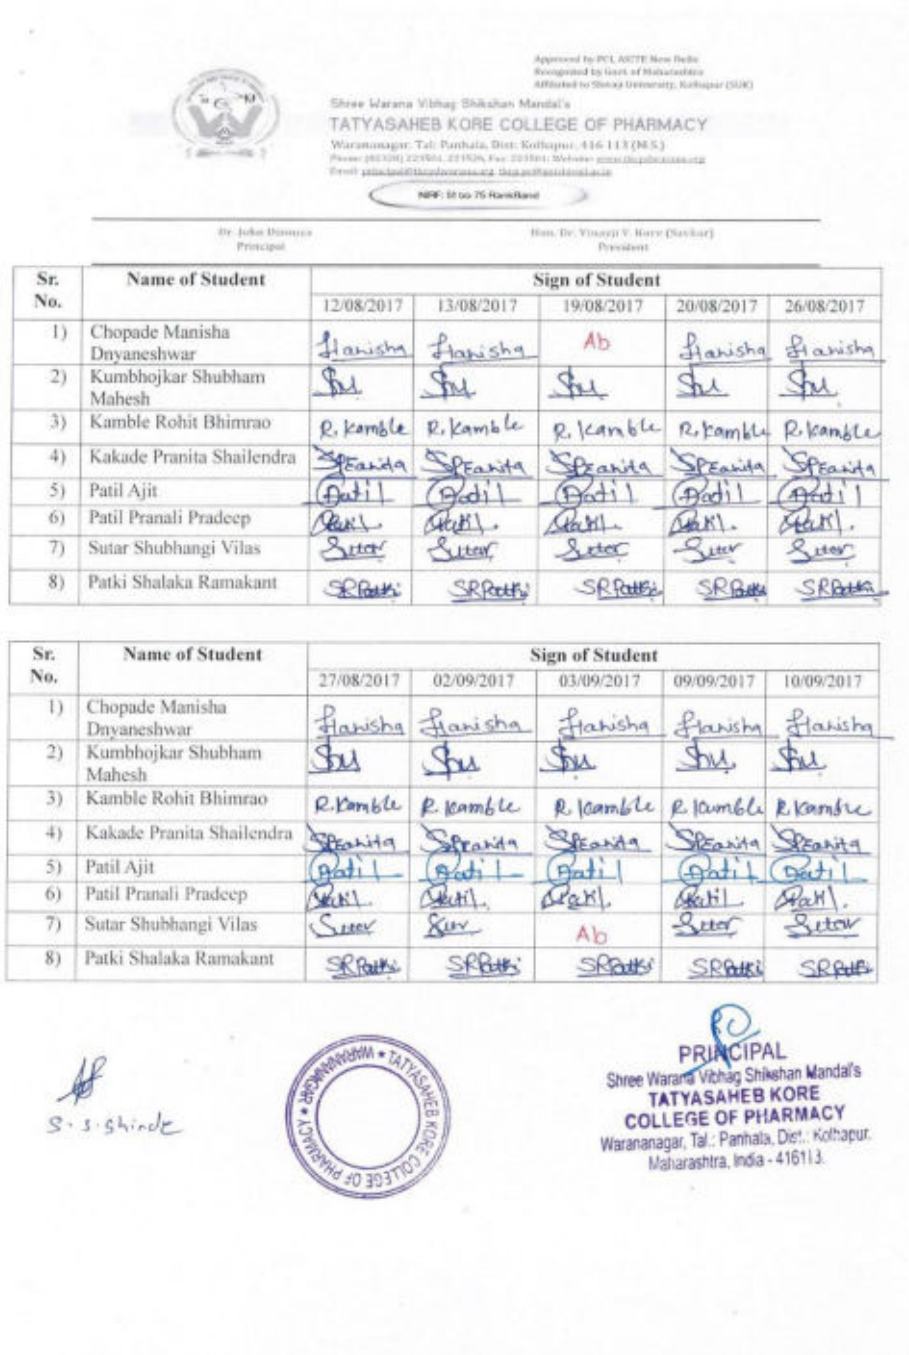 Approved by PCI, AICTE New Delhi
Recognized by Govt. of Maharashtra
Affiliated to Shivaji University, Kolhapur (SUK)
Shree Warana Vibhag Shikshan Mandal's
TATYASAHEB KORE COLLEGE OF PHARMACY
Warananagar, Tal: Panhala, Dist: Kolhapur, 416 113 (M.S.)
NIRF: 51 to 75 RankBand
Hon. Dr. Vinayji V. Kore (Savkar)
Principal President
Sr. No. Name of Student Sign of Student
12/08/2017 13/08/2017 19/08/2017 20/08/2017 26/08/2017
1) Chopade Manisha Dnyaneshwar Manisha Manisha Ab Manisha Manisha
2) Kumbhojkar Shubham Mahesh
3) Kamble Rohit Bhimrao R. Kamble R. Kamble R. Kamble R. Kamble R. Kamble
4) Kakade Pranita Shailendra
5) Patil Ajit Patil Patil Patil Patil Patil
6) Patil Pranali Pradeep
7) Sutar Shubhangi Vilas Sutar Sutar Sutar Sutar Sutar
8) Patki Shalaka Ramakant SRPatki SRPatki SRPatki SRPatki SRPatki
Sr. No. Name of Student Sign of Student
27/08/2017 02/09/2017 03/09/2017 09/09/2017 10/09/2017
1) Chopade Manisha Dnyaneshwar Manisha Manisha Manisha Manisha Manisha
2) Kumbhojkar Shubham Mahesh
3) Kamble Rohit Bhimrao R. Kamble R. Kamble R. Kamble R. Kamble R. Kamble
4) Kakade Pranita Shailendra
5) Patil Ajit Patil Patil Patil Patil Patil
6) Patil Pranali Pradeep
7) Sutar Shubhangi Vilas Sutar Ab Sutar Sutar
8) Patki Shalaka Ramakant SRPatki SRPatki SRPatki SRPatki SRPatki
S. S. Shinde
TATYASAHEB KORE COLLEGE OF PHARMACY * WARANANAGAR *
PRINCIPAL
Shree Warana Vibhag Shikshan Mandal's
TATYASAHEB KORE
COLLEGE OF PHARMACY
Warananagar, Tal.: Panhala, Dist.: Kolhapur.
Maharashtra, India - 416113.